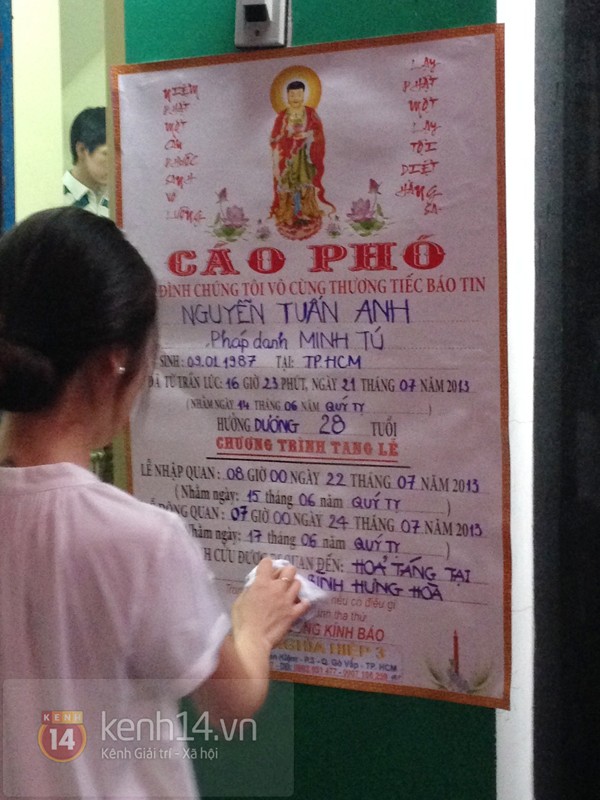 NIỆM
PHẬT
MỘT
CÂU
PHƯỚC
SANH
VÔ
LƯỢNG
LẠY
PHẬT
MỘT
LẠY
TỘI
DIỆT
HẰNG
SA
CÁO PHÓ
ĐÌNH CHÚNG TÔI VÔ CÙNG THƯƠNG TIẾC BÁO TIN
NGUYỄN TUẤN ANH
Pháp danh MINH TÚ
SINH: 09.01.1987 TẠI: TP.HCM
ĐÃ TỪ TRẦN LÚC: 16 GIỜ 23 PHÚT, NGÀY 21 THÁNG 07 NĂM 2013
(NHẰM NGÀY 14 THÁNG 06 NĂM QUÝ TỴ )
HƯỞNG DƯƠNG 28 TUỔI
CHƯƠNG TRÌNH TANG LỄ
LỄ NHẬP QUAN: 08 GIỜ 00 NGÀY 22 THÁNG 07 NĂM 2013
(Nhằm ngày: 15 tháng 06 năm QUÝ TỴ )
ĐỘNG QUAN: 07 GIỜ 00 NGÀY 24 THÁNG 07 NĂM 2013
Nhằm ngày: 17 tháng 06 năm QUÝ TỴ )
H CỬU ĐƯỢC QUAN ĐẾN: HOẢ TÁNG TẠI
BÌNH HƯNG HOÀ
nếu có điều gì
tha thứ
KÍNH BÁO
NGHĨA HIỆP 3
P.3 - Q. Gò Vấp - TP. HCM
KENH
14
kenh14.vn
Kênh Giải trí - Xã hội